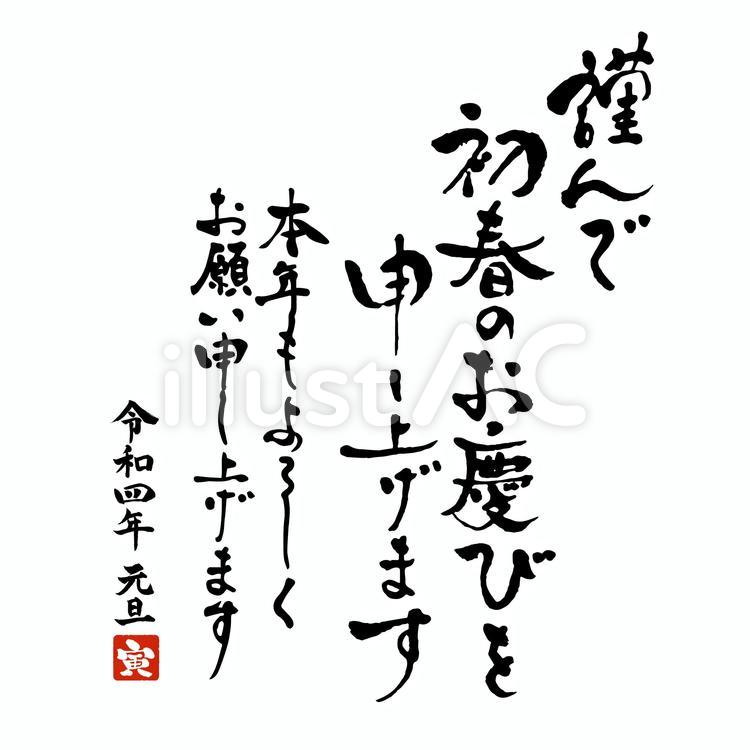 謹んで
初春のお慶びを
申し上げます
本年もよろしく
お願い申し上げます
令和四年 元旦
寅
illustAC